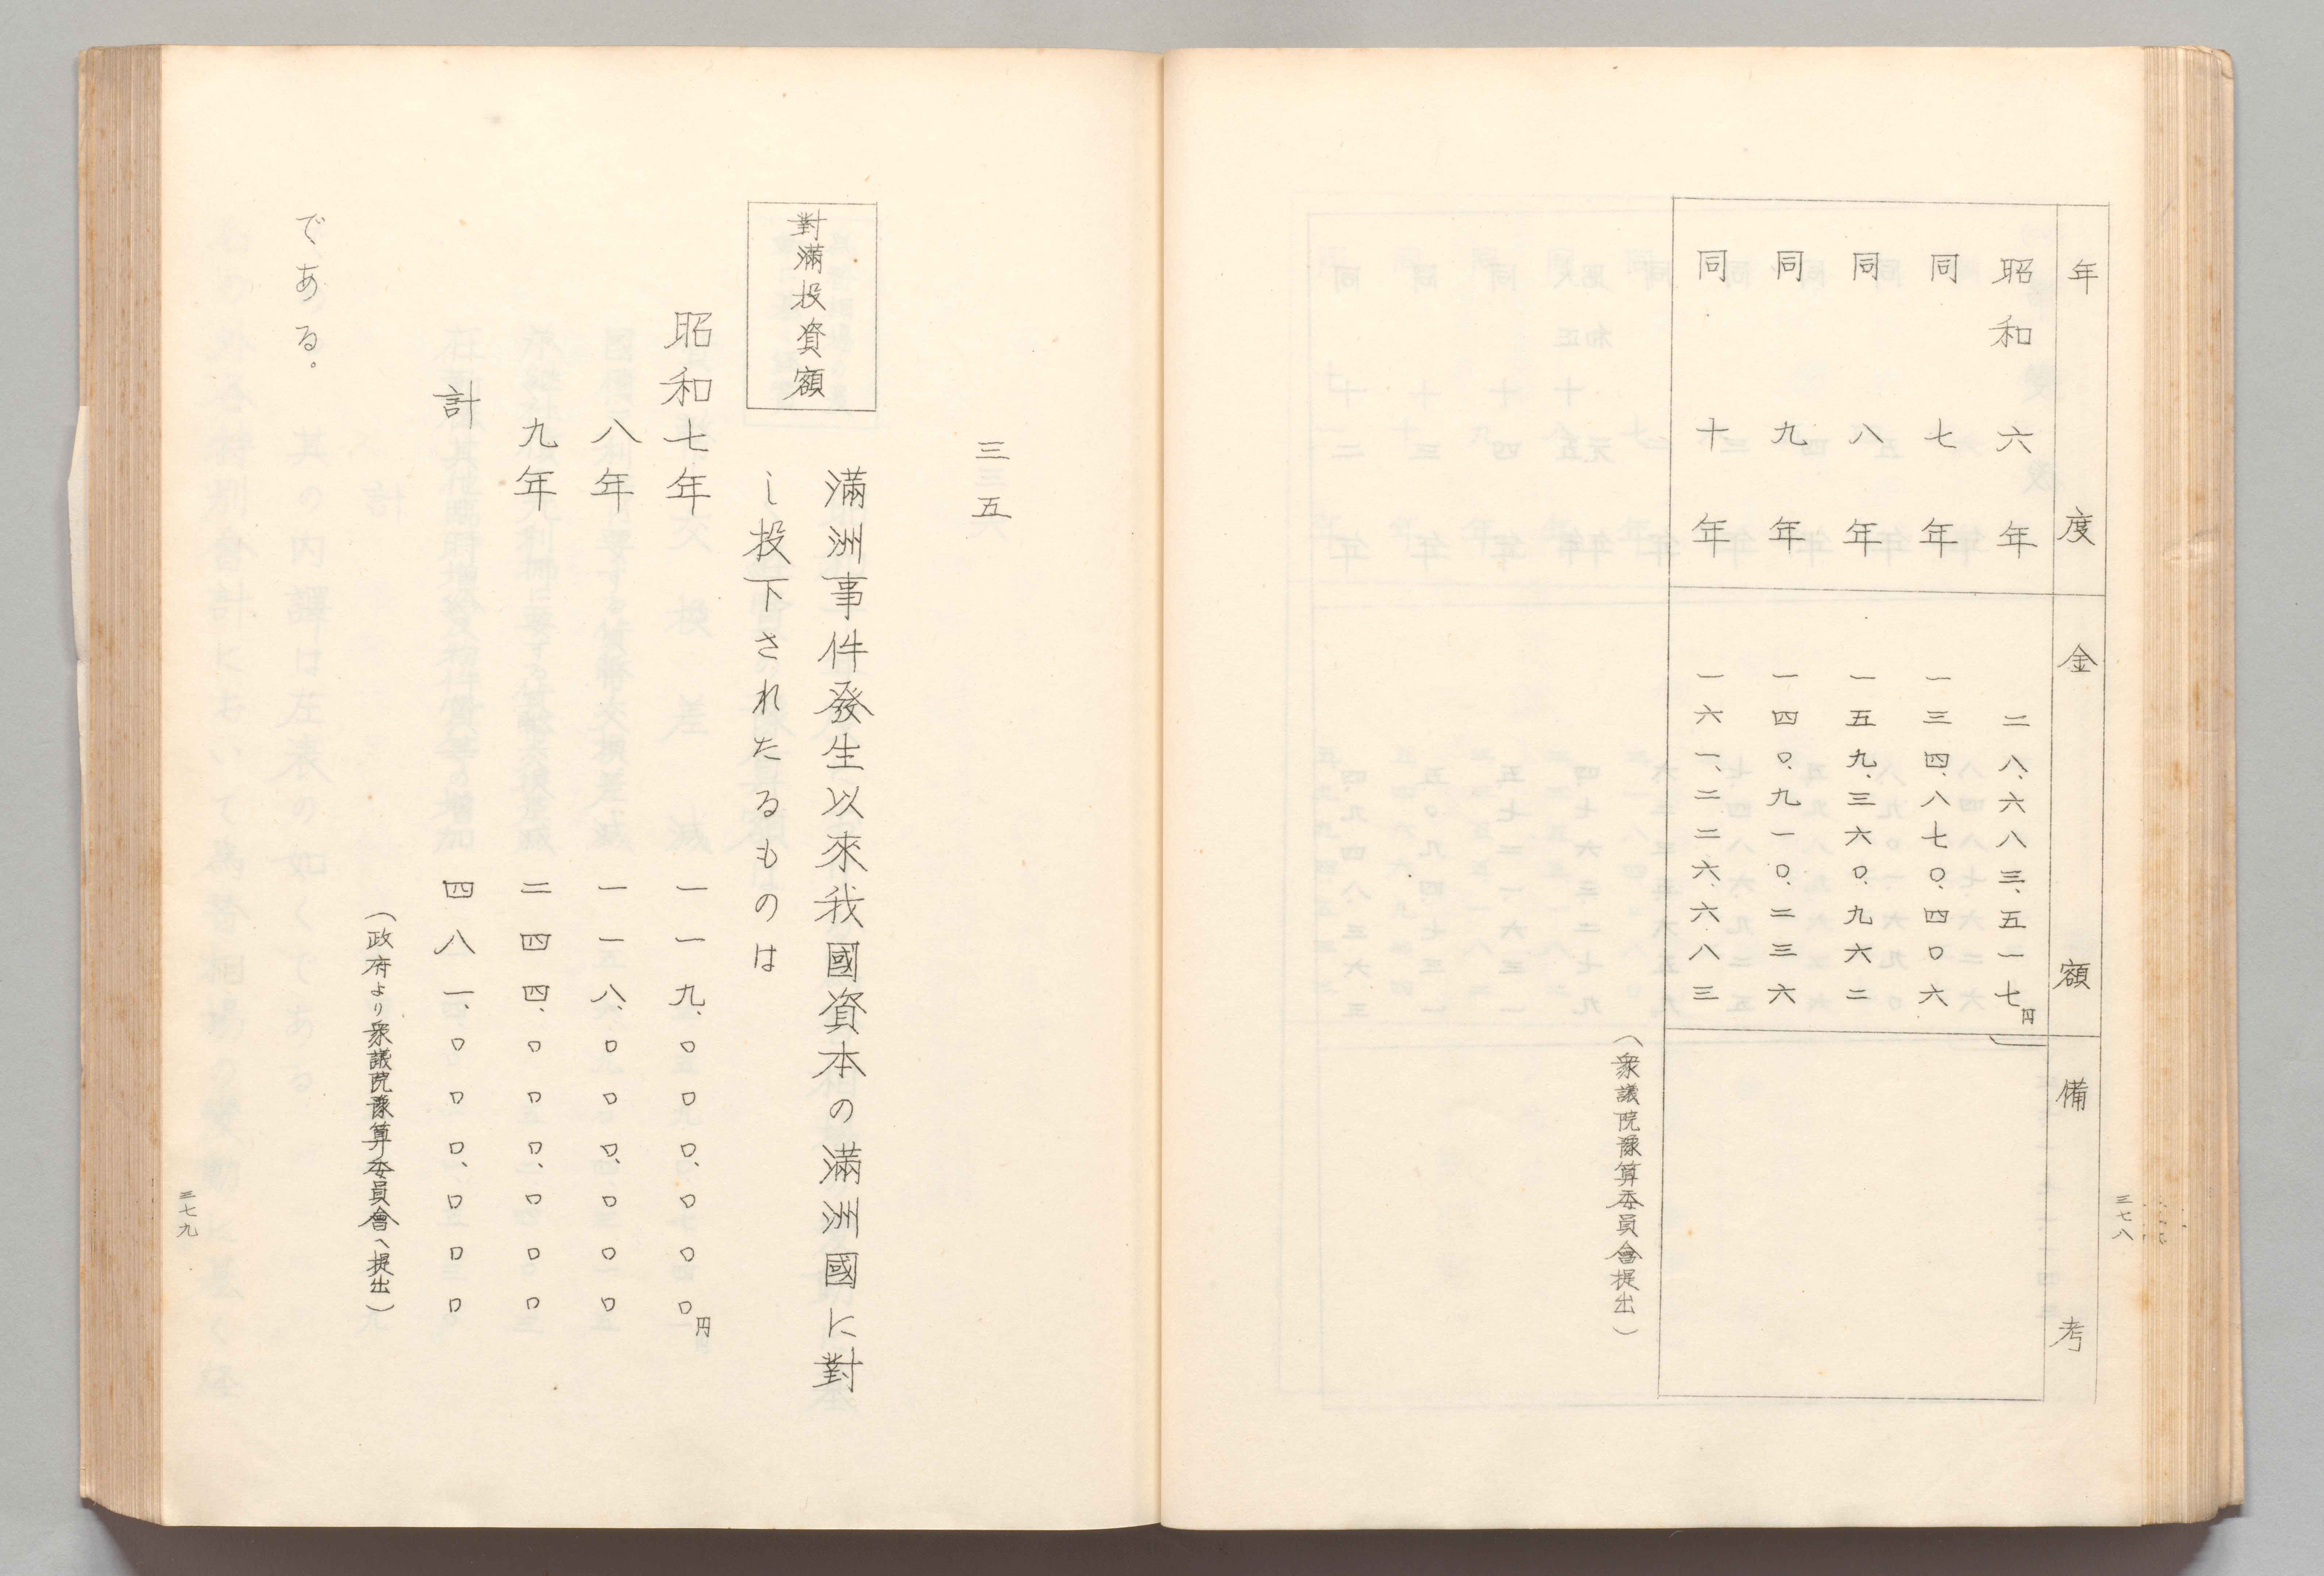 年度 金額 備考
昭和六年 二八、六八三、五一七円
同七年 一三四、八七〇、四〇六
同八年 一五九、三六〇、九六二
同九年 一四〇、九一〇、二三六
同十年 一六一、二二六、六八三
（衆議院豫算委員會提出）
三七八
三五
對滿投資額
滿洲事件發生以來我國資本の滿洲國に對
し投下されたるものは
昭和七年 一一九、〇〇〇、〇〇〇円
八年 一一八、〇〇〇、〇〇〇
九年 二四四、〇〇〇、〇〇〇
計 四八一、〇〇〇、〇〇〇
（政府より衆議院豫算委員會へ提出）
である。
三七九